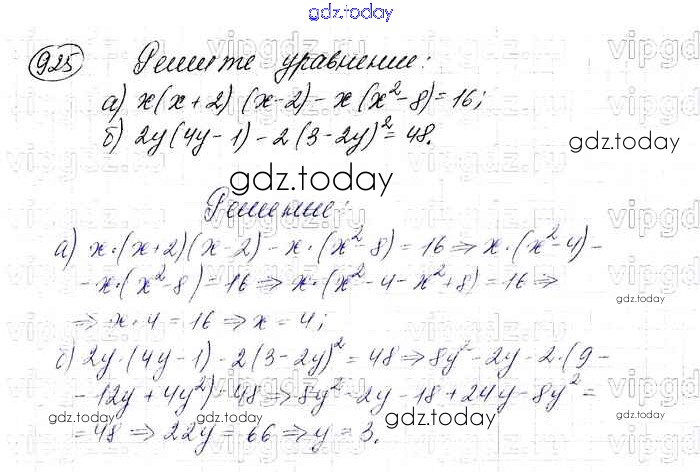 gdz.today
925 Решите уравнение:
а) x(x+2)(x-2)-x(x²-8)=16;
б) 2y(4y-1)-2(3-2y)²=48.
gdz.today
gdz.today
Решение:
а) x·(x+2)(x-2)-x·(x²-8)=16⇒x·(x²-4)-
-x·(x²-8)=16⇒x·(x²-4-x²+8)=16⇒
gdz.today
⇒x·4=16⇒x=4;
б) 2y·(4y-1)-2(3-2y)²=48⇒8y²-2y-2·(9-
-12y+4y²)=48⇒8y²-2y-18+24y-8y²=
gdz.today
gdz.today
=48⇒22y=66⇒y=3.
gdz.today